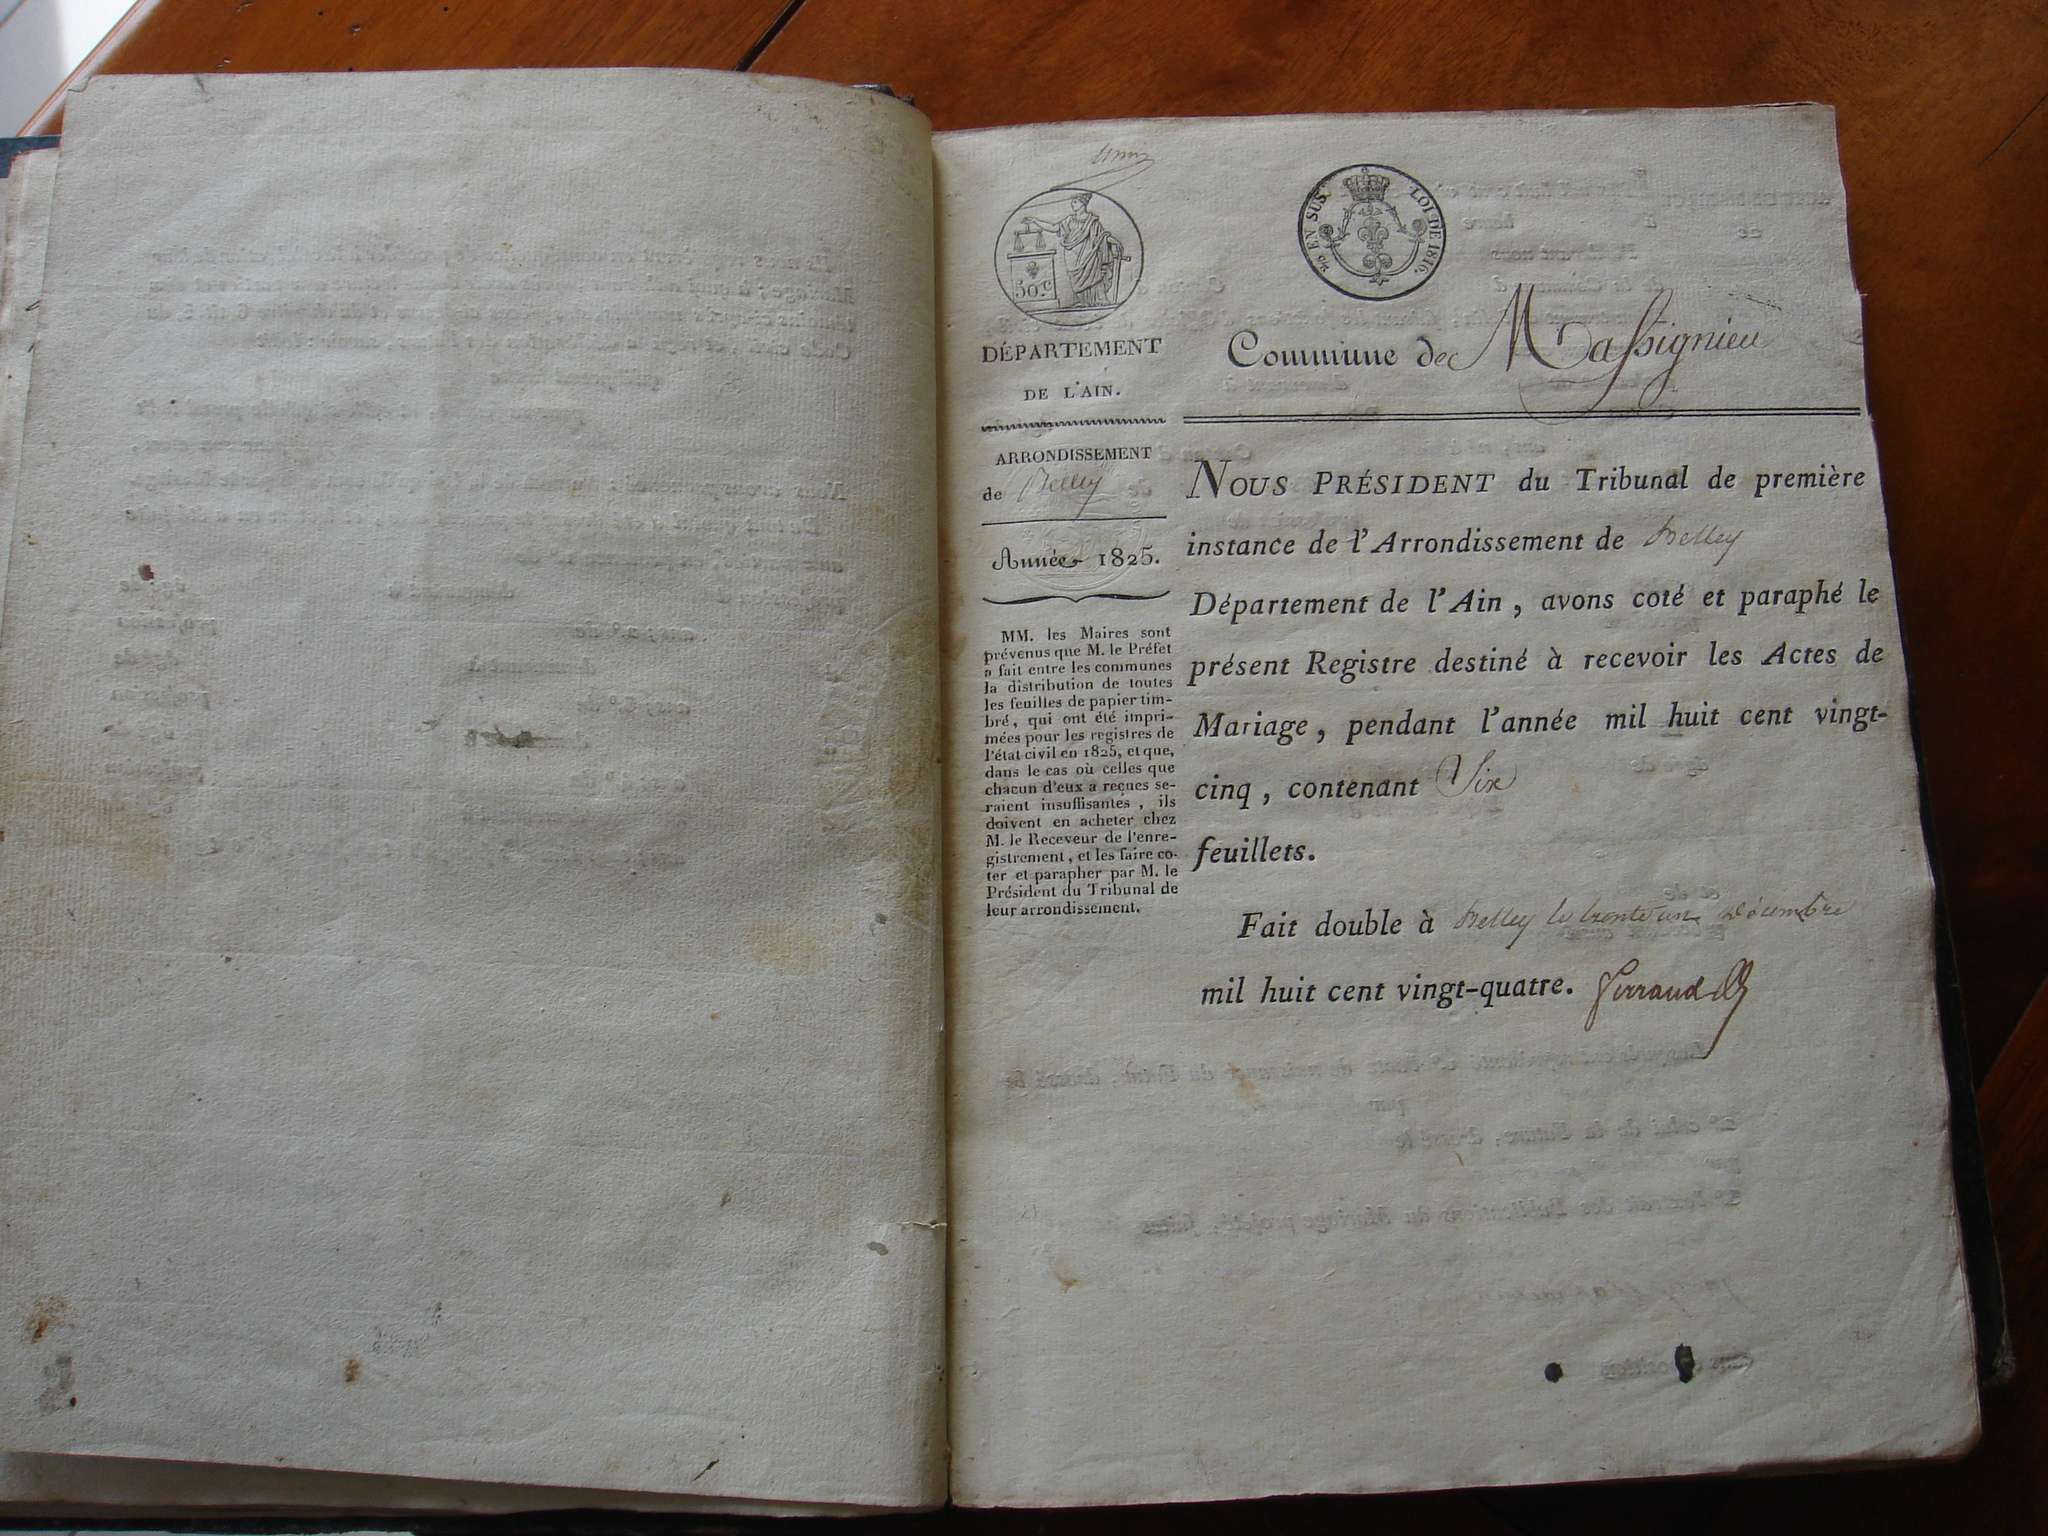 50.c
EN SUS. LOI DE 1816.
DÉPARTEMENT
DE L'AIN.
ARRONDISSEMENT
de Belley
Année 1825.
MM. les Maires sont
prévenus que M. le Préfet
a fait entre les communes
la distribution de toutes
les feuilles de papier tim-
bré, qui ont été impri-
mées pour les registres de
l'état civil en 1825, et que,
dans le cas où celles que
chacun d'eux a reçues se-
raient insuffisantes, ils
doivent en acheter chez
M. le Receveur de l'enre-
gistrement, et les faire co-
ter et parapher par M. le
Président du Tribunal de
leur arrondissement.
Commune de Massignieu
NOUS PRÉSIDENT du Tribunal de première
instance de l'Arrondissement de Belley
Département de l'Ain, avons coté et paraphé le
présent Registre destiné à recevoir les Actes de
Mariage, pendant l'année mil huit cent vingt-
cinq, contenant Six
feuillets.
Fait double à Belley le trente un Décembre
mil huit cent vingt-quatre.